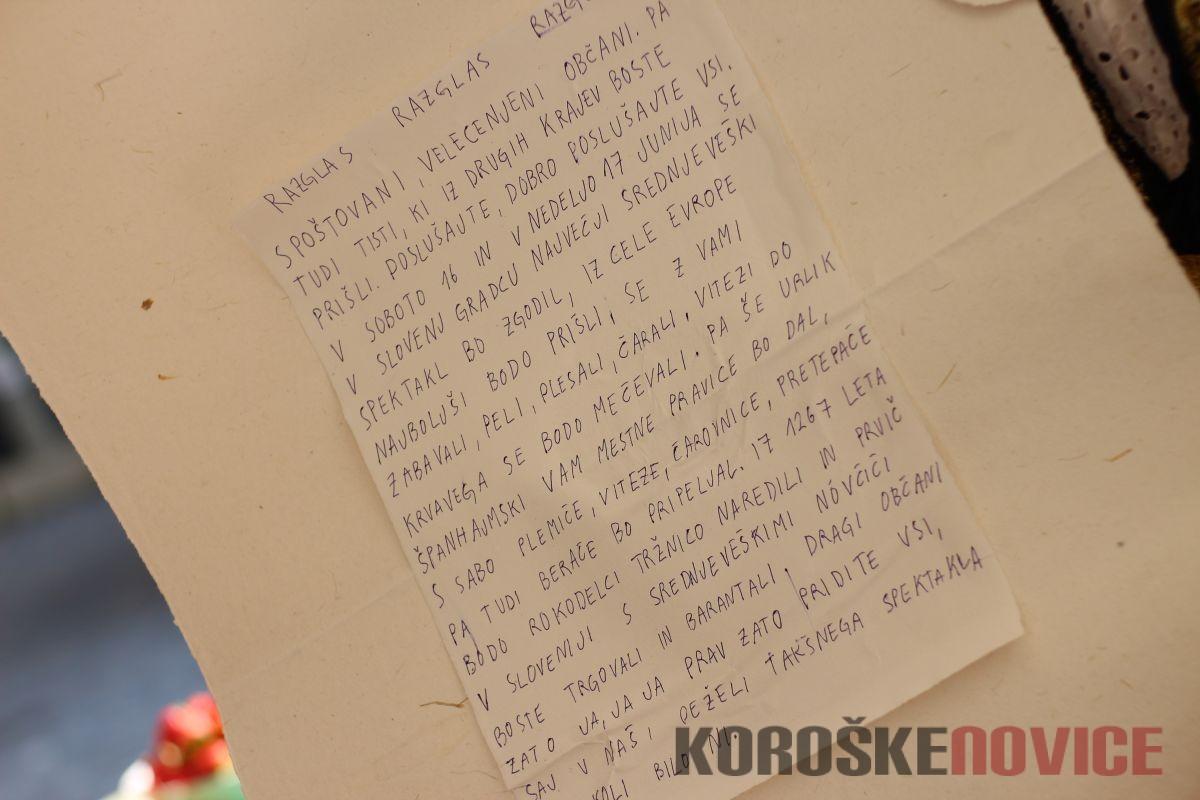 RAZGLAS RAZGLAS
SPOŠTOVANI, VELECENJENI OBČANI. PA
TUDI TISTI, KI IZ DRUGIH KRAJEV BOSTE
PRIŠLI. POSLUŠAJTE, DOBRO POSLUŠAJTE VSI.
V SOBOTO 16 IN V NEDELJO 17 JUNIJA SE
V SLOVENJ GRADCU NAJVEČJI SREDNJEVEŠKI
SPEKTAKL BO ZGODIL, IZ CELE EVROPE
NAJBOLJŠI BODO PRIŠLI, SE Z VAMI
ZABAVALI, PELI, PLESALI, ČARALI, VITEZI DO
KRVAVEGA SE BODO MEČEVALI. PA ŠE URLIK
ŠPANHAJMSKI VAM MESTNE PRAVICE BO DAL,
S SABO PLEMIČE, VITEZE, ČAROVNICE, PRETEPAČE
PA TUDI BERAČE BO PRIPELJAL. IZ 1267 LETA
BODO ROKODELCI TRŽNICO NAREDILI IN PRVIČ
V SLOVENIJI S SREDNJEVEŠKIMI NÓVČIČI
BOSTE TRGOVALI IN BARANTALI. DRAGI OBČANI
ZATO JA, JA JA PRAV ZATO PRIDITE VSI,
SAJ V NAŠI DEŽELI TAKŠNEGA SPEKTAKLA
KOLI BILO NI.
KOROŠKENOVICE